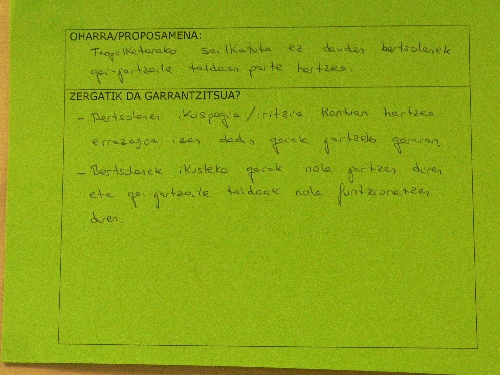 OHARRA/PROPOSAMENA:
Txapelketarako sailkatuta ez dauden bertsolariek
gai-jartzaile taldean parte hartzea.
ZERGATIK DA GARRANTZITSUA?
- Bertsolarien ikuspegia/iritzia kontuan hartzea
errazagoa izan dadin gaiak jartzeko garaian.
- Bertsolariek ikusteko gaiak nola jartzen diren
eta gai-jartzaile taldeak nola funtzionatzen
duen.